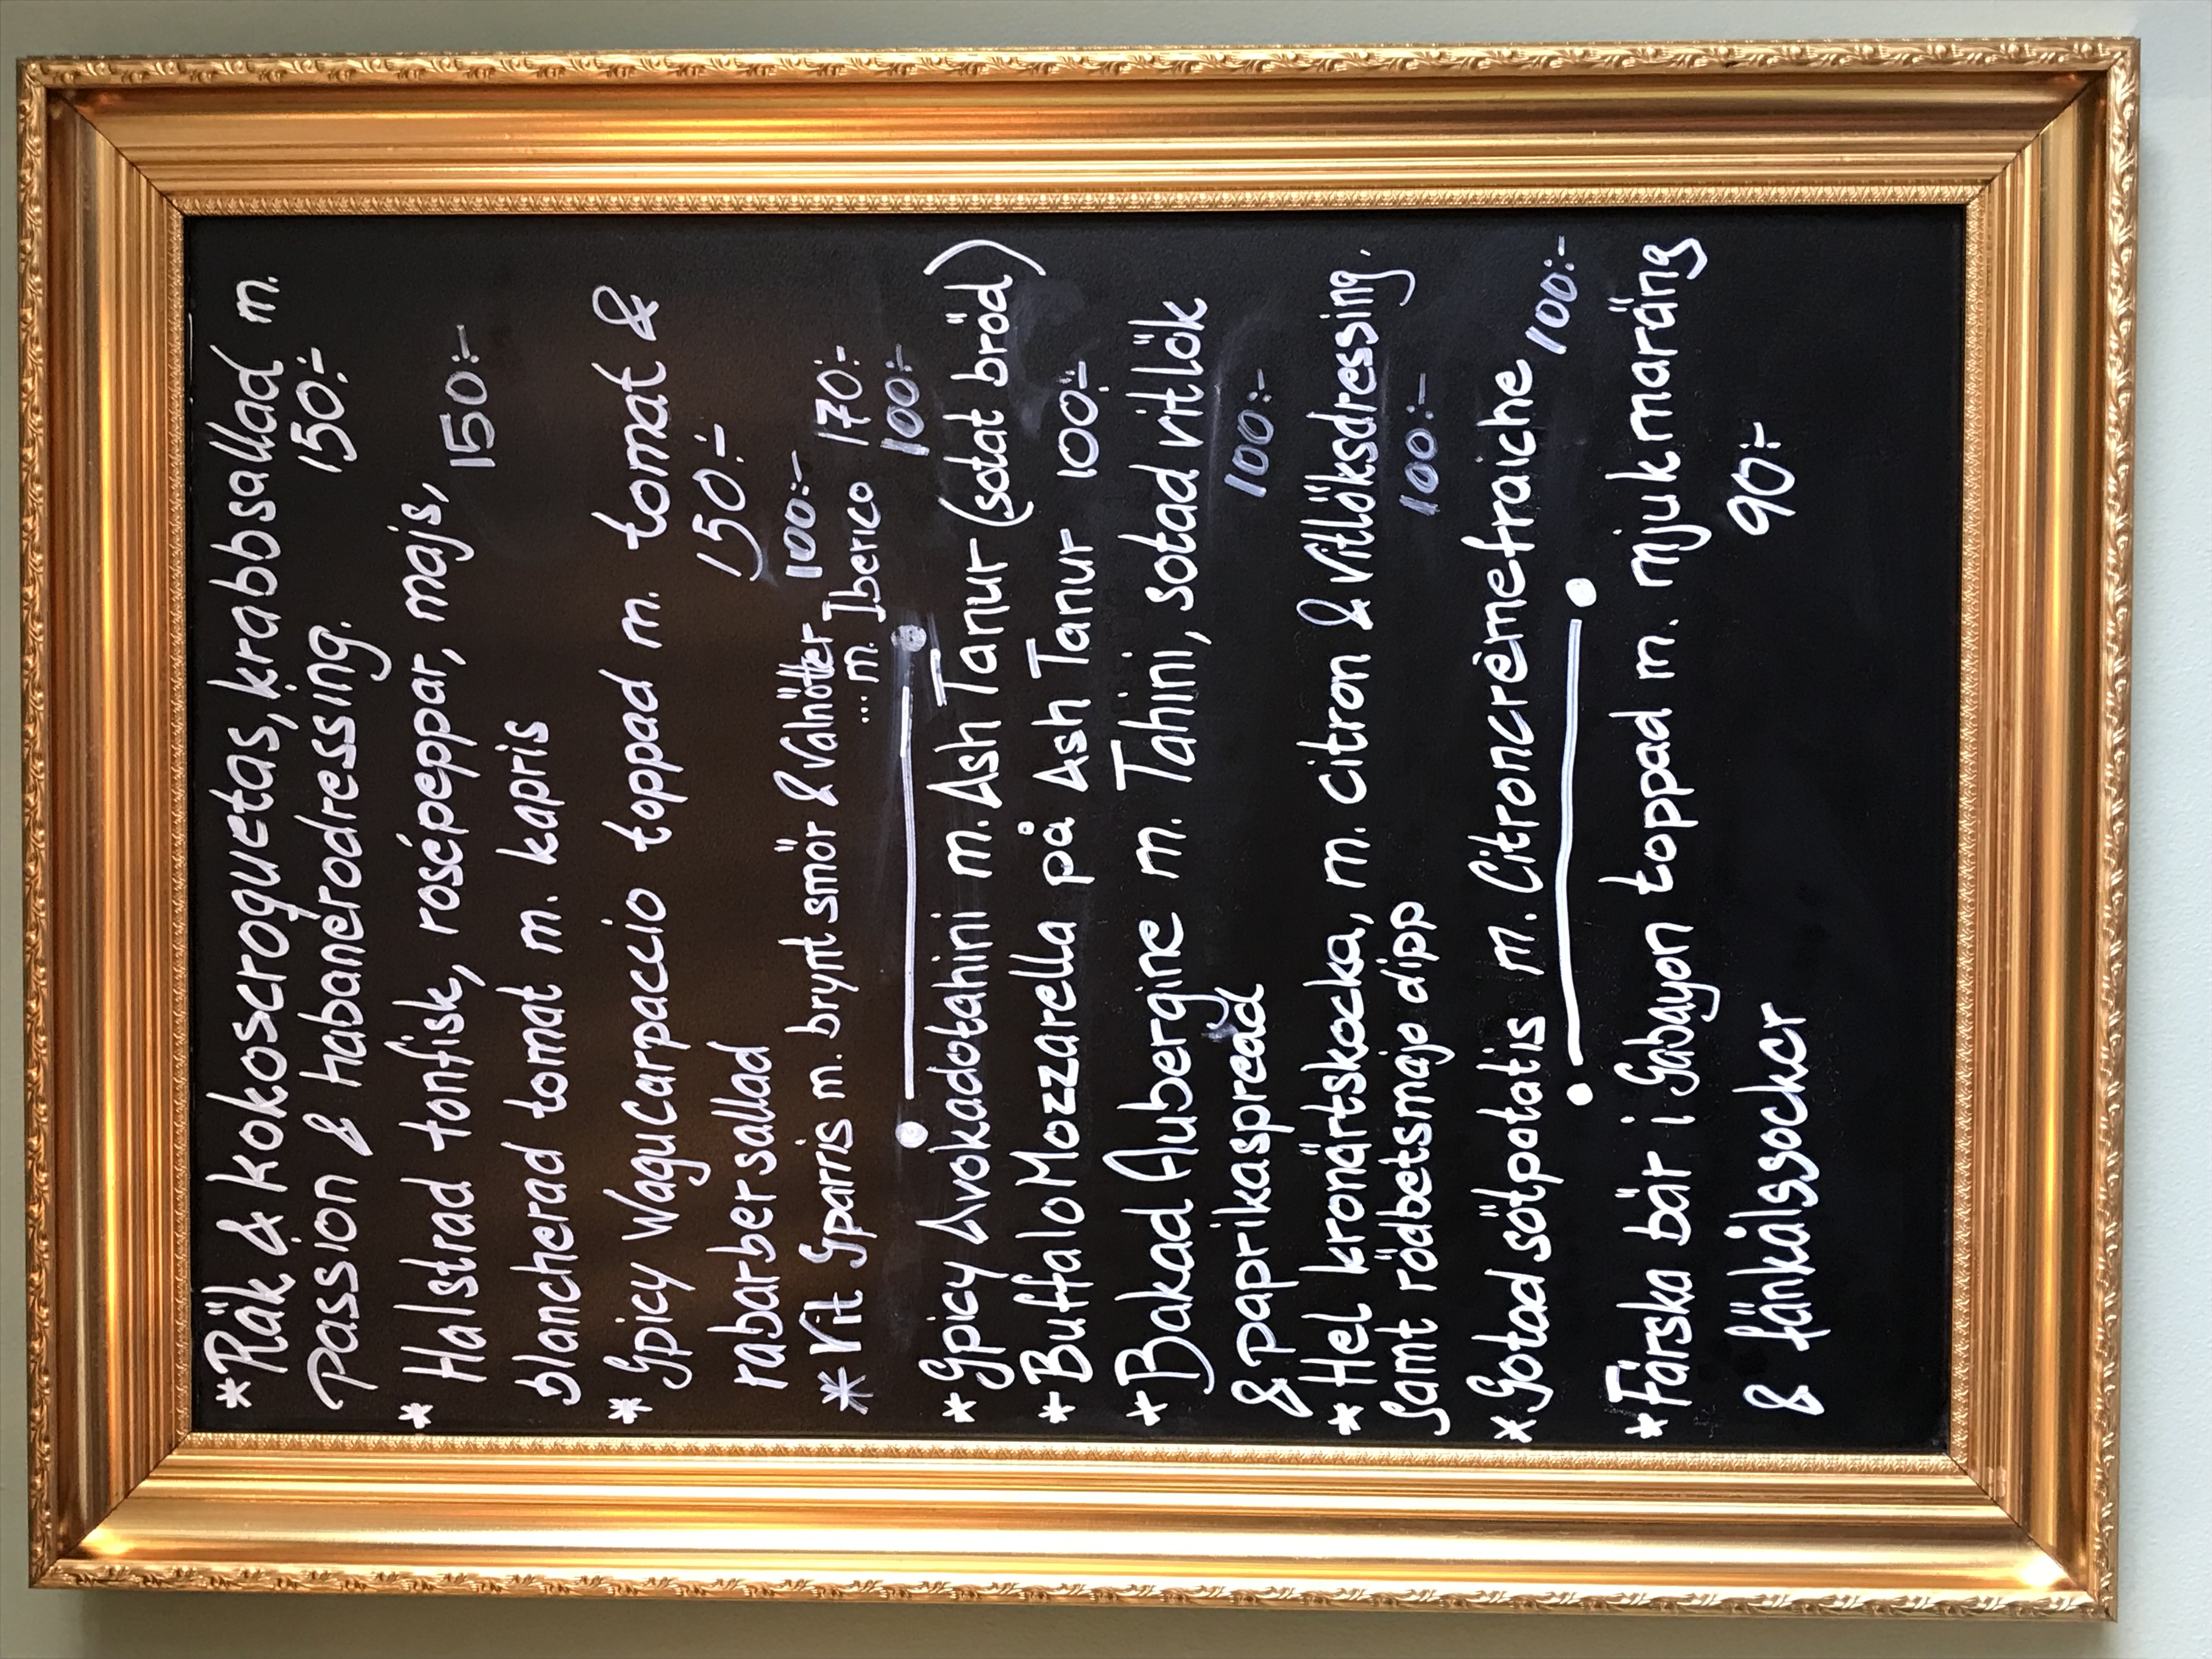 *Räk & kokoscroquetas, krabbsallad m.
Passion & habanérodressing. 150:-
* Halstrad tonfisk, rosépeppar, majs, 150:-
blancherad tomat m. kapris
* Spicy WaguCarpaccio toppad m. tomat &
rabarbersallad 150:-
* Vit Sparris m. brynt smör & Valnötter 100:-
... m. Iberico 170:-
100:-
* Spicy Avokadotahini m. Ash Tanur (sotat bröd)
* Buffalo Mozzarella på Ash Tanur 100:-
* Bakad Aubergine m. Tahini, sotad vitlök
& paprikaspread 100:-
* Hel kronärtskocka, m. citron & Vitlöksdressing.
Samt rödbetsmajo dipp 100:-
* Sotad sötpotatis m. Citroncrèmefraiche 100:-
* Färska bär i Sabayon toppad m. mjuk maräng
& fänkålssocker 90:-